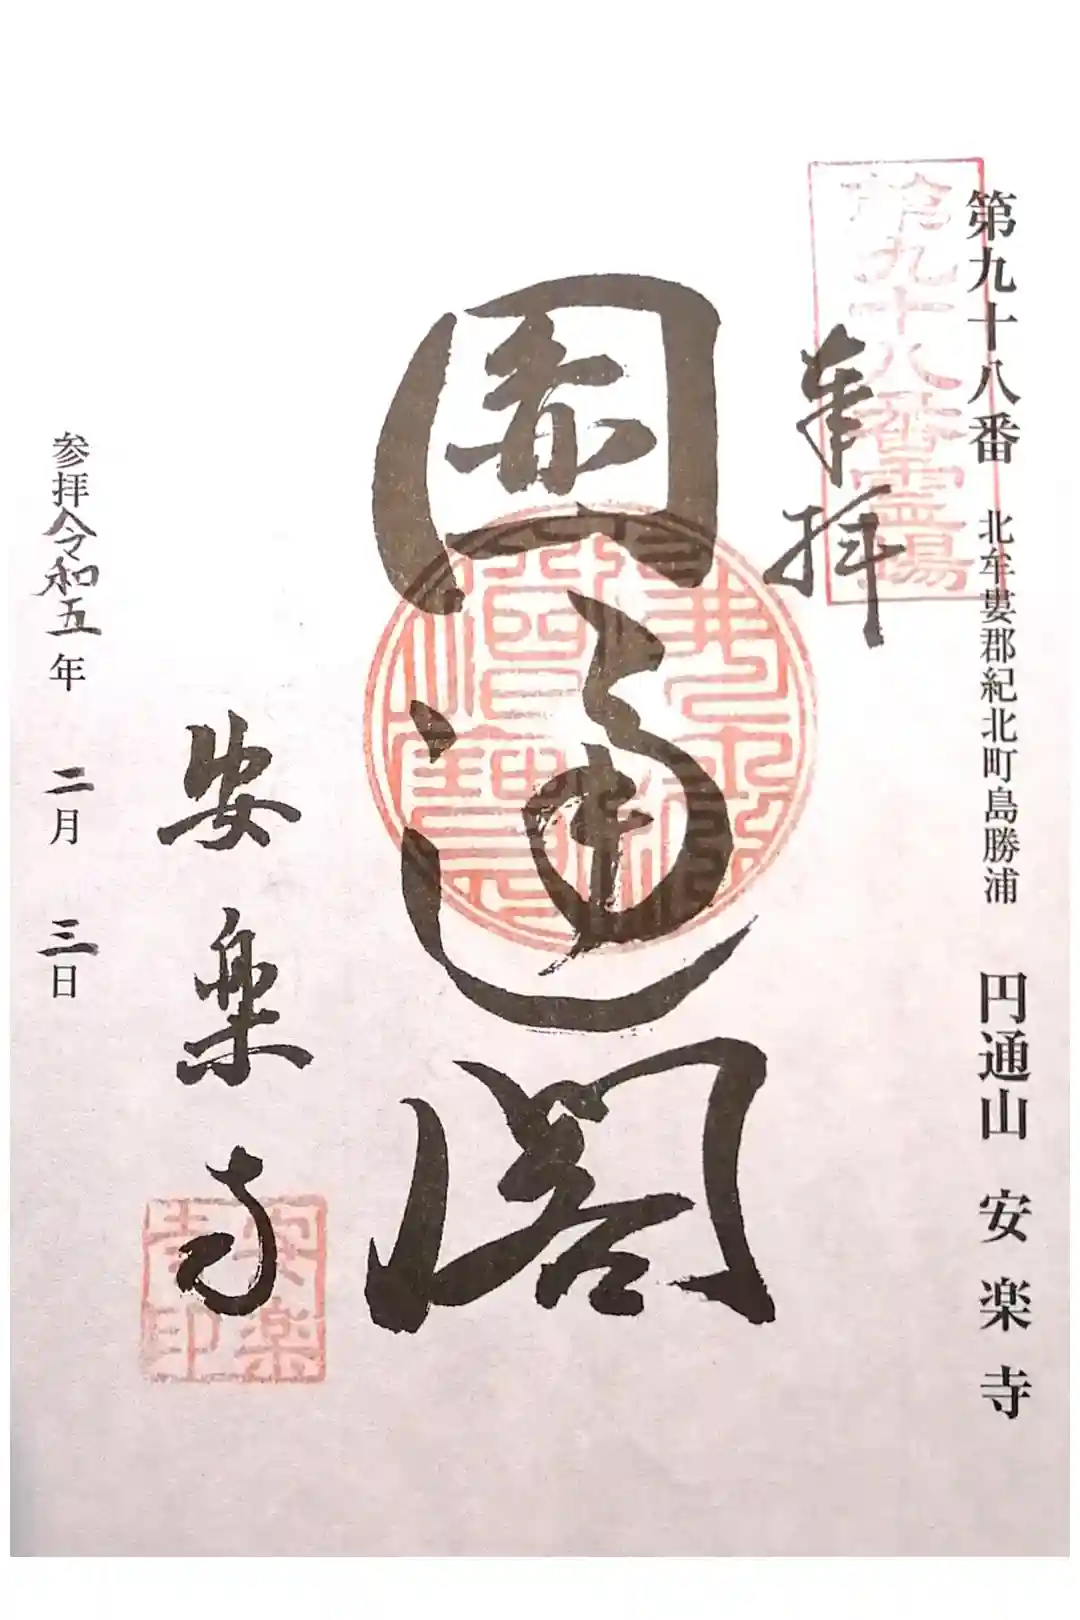 第九十八番 北牟婁郡紀北町島勝浦 円通山 安楽寺
第九十八番霊場
奉拝
圓通閣
安楽寺
安楽寺印
参拝令和五年 二月 三日